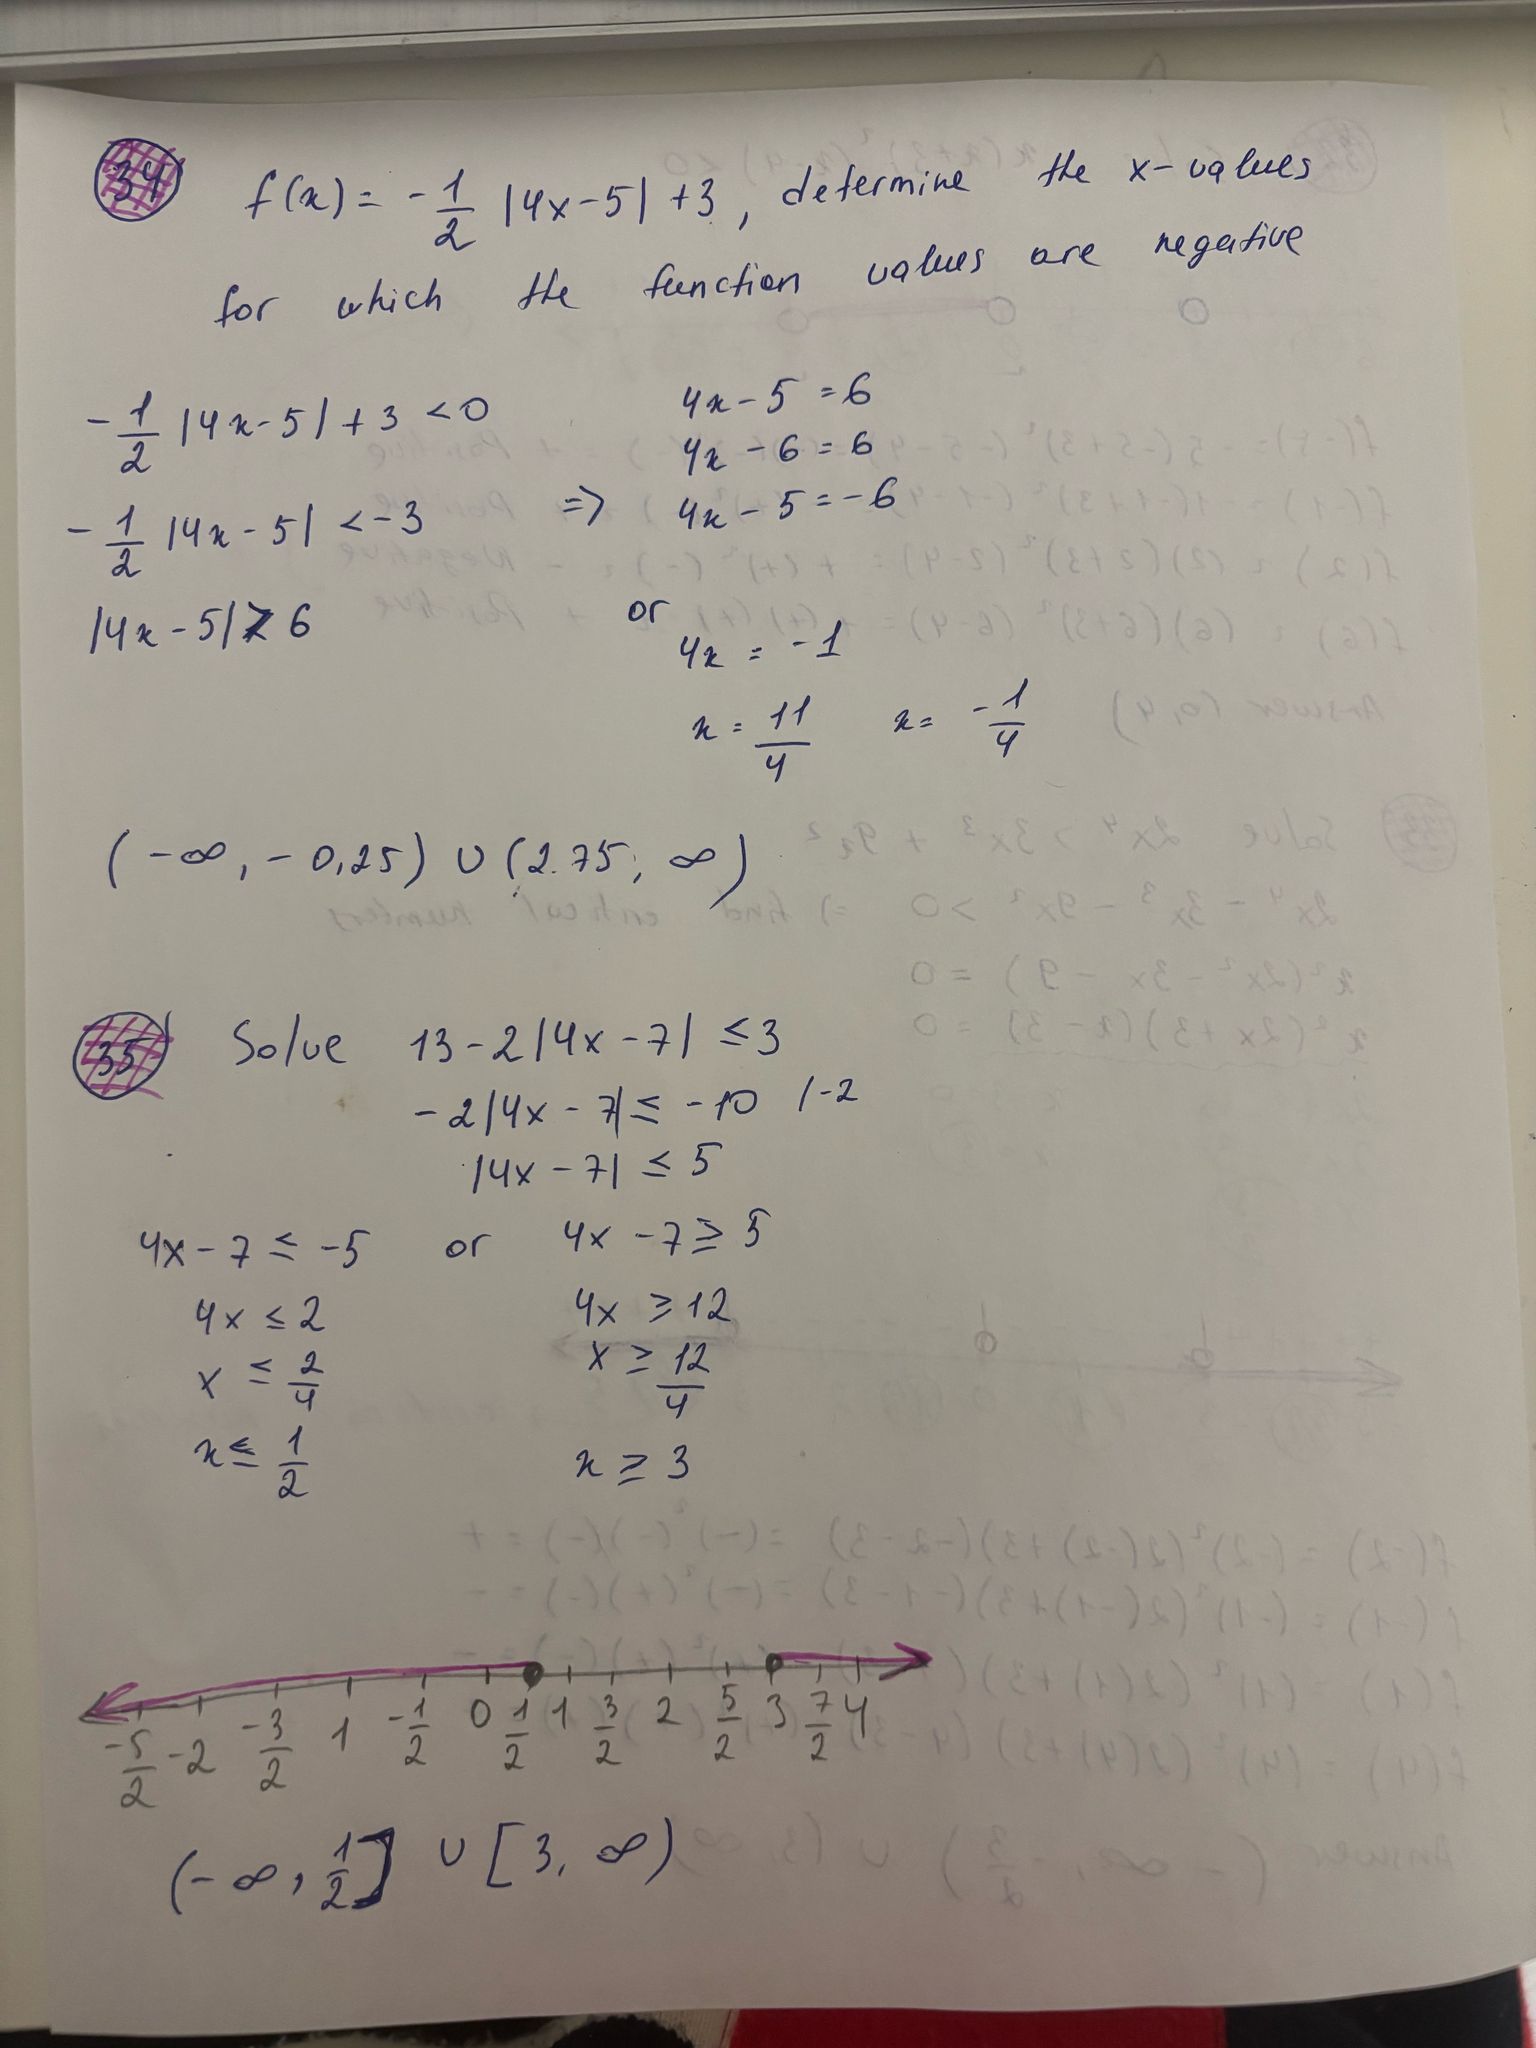 34 f(x) = -1/2 |4x-5| +3, determine the x-values
for which the function values are negative
-1/2 |4x-5| + 3 < 0
-1/2 |4x-5| < -3 =>
|4x-5| > 6
4x-5 = 6
4x - 6 = 6
4x - 5 = -6
or
4x = -1
x = 11/4 x = -1/4
(-∞, -0,25) ∪ (2.75; ∞)
35 Solve 13 - 2|4x - 7| ≤ 3
-2|4x - 7| ≤ -10 /-2
|4x - 7| ≤ 5
4x - 7 ≤ -5 or 4x - 7 ≥ 5
4x ≤ 2 4x ≥ 12
x ≤ 2/4 x ≥ 12/4
x ≤ 1/2 x ≥ 3
-5/2 -2 -3/2 1 -1/2 0 1/2 1 3/2 2 5/2 3 7/2 4
(-∞, 1/2] ∪ [3, ∞)